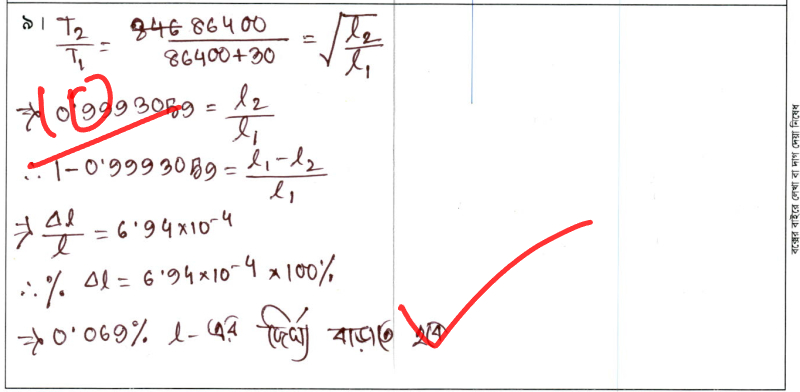 ৯। T₂/T₁ = 86400/(86400+30) = √(l₂/l₁)
⇒ 0.9993059 = l₂/l₁
∴ 1-0.9993059 = (l₁-l₂)/l₁
⇒ Δl/l = 6.94×10⁻⁴
∴ % Δl = 6.94×10⁻⁴ × 100%
⇒ 0.069% l-এর দৈর্ঘ্য বাড়াতে হবে
10
বক্সের বাইরে লেখা বা দাগ দেয়া নিষেধ